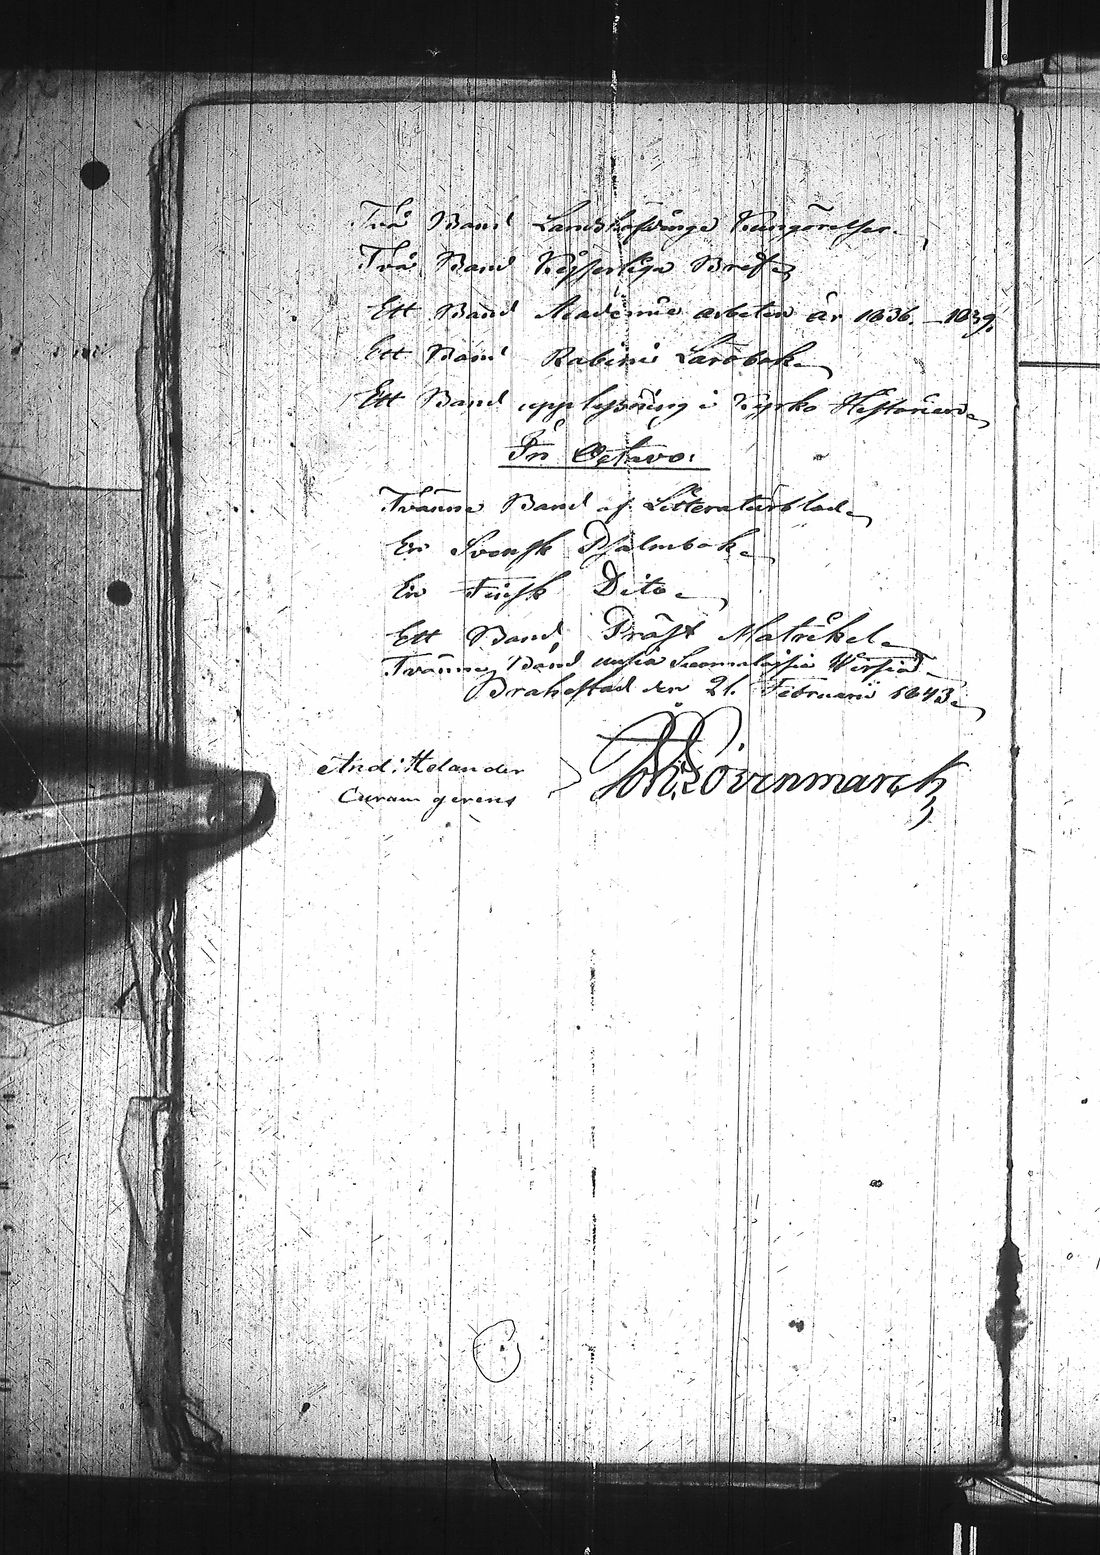 Två Band Landshöfdinge Kungörelser.
Två Band Kejserliga Bref
Ett Band Academie arbeten år 1836.–1839.
Ett Band Rabenii Lärobok
Ett Band upplysning i Kyrko Historien
In Octavo:
Tvänne Band af Litteraturblad
En Svensk Psalmbok
En Finsk Dito
Ett Band Präst Matrikel
Tvänne Band uusia Suomalaisia Wirsiä
Brahestad den 21. Februarii 1843.
And: Helander
Curam gerens
Joh: Lövenmarck